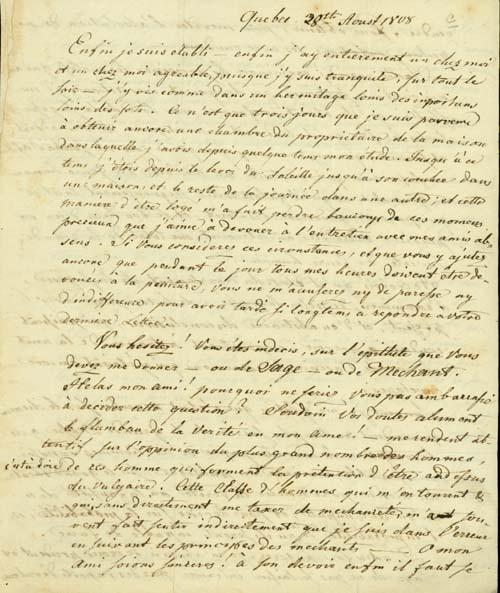 Quebec 28th Aoust 1808
Enfin je suis etabli — enfin j'ay entierement un chez moi
et un chez moi agreable, puisque j'y suis tranquile, sur tout le
soir — j'y vis comme dans un hermitage loins des inportuns
loins des sots. Ce n'est que trois jours que je suis parvenu
à obtenir ancore une chambre du proprietaire de la maison
dans laquelle j'avois depuis quelque tems mon etude. Jusqu'à ce
tems j'étois depuis le levé du soleille jusqu'à son coucher dans
une maison, et le reste de la journée dans une autre; et cette
maniere d'être logé m'a fait perdre beaucoup de ces momens
precieux que j'aime à devouer à l'entretien avec mes amis ab-
sens. Si Vous consideres ces circonstances, et que vous y ajutes
ancore que pendant le jour tous mes heures doivent être de-
vouées à la peinture, vous ne m'accuseres ny de paresse ny
d'indifference pour avoir tardé si longtems à repondre a votre
derniere Lettre.
Vous hesitez! Vous êtes indecis, sur l'epithete que Vous
devez me donner — ou de Sage — ou de Mechant.
Helas mon ami! pourquoi ne series Vous pas ambarassé
à decider cette question? Vos doutes alument
le flambeau de la Verité en mon Ame! — me rendent at-
tentif sur l'oppinion du plus grand nombre des hommes,
c'est à dire de ces homme qui forment la prétention d'être au dessus
du Vulgaire. Cette Classe d'hommes qui m'entourent &
qui, sans directement me taxer de mechanceté, m'ont sou-
vent fait sentir indirectement que je suis dans l'erreur
en suivant les principes des mechants — O mon
Ami soions sinceres! à son devoir enfin il faut se